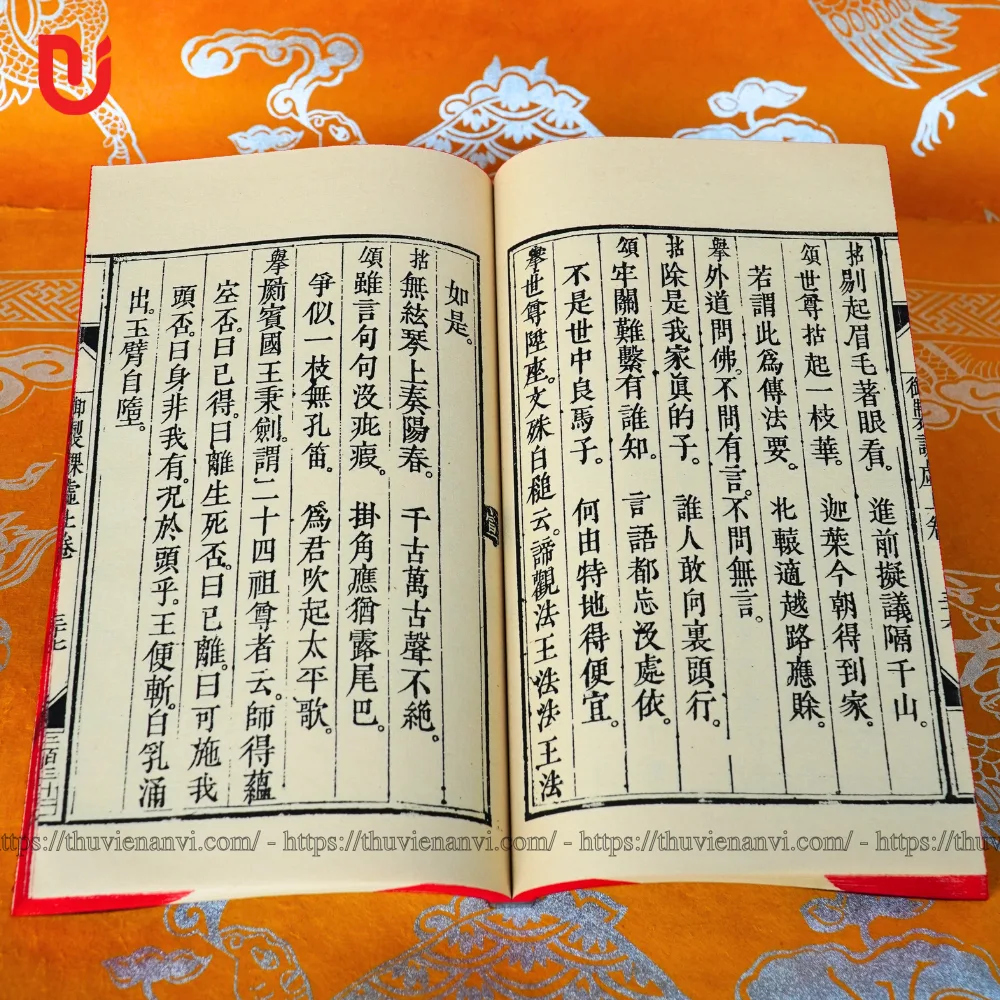 拈剔起眉毛著眼看。 進前擬議隔千山。
頌世尊拈起一枝華。 迦葉今朝得到家。
若謂此爲傳法要。 北轅適越路應賒。
舉外道問佛。不問有言。不問無言。
拈除是我家眞的子。 誰人敢向裏頭行。
頌牢關難繫有誰知。 言語都忘沒處依。
不是世中良馬子。 何由特地得便宜。
舉世尊陞座。文殊白槌云。諦觀法王法法王法
如是。
拈無絃琴上奏陽春。 千古萬古聲不絶。
頌雖言句句沒疵瘕。 掛角應猶露尾巴。
爭似一枝無孔笛。 爲君吹起太平歌。
舉罽賓國王秉劍。謂二十四祖尊者云。師得蘊
空否。曰已得。曰離生死否。曰已離。曰可施我
頭否。曰身非我有。況於頭乎。王便斬。白乳涌
出。王臂自墮。
御製課虛 上卷
三十七
https://thuvienanvi.com/ - https://thuvienanvi.com/ - https://thuvienanvi.com/ - https://thuv